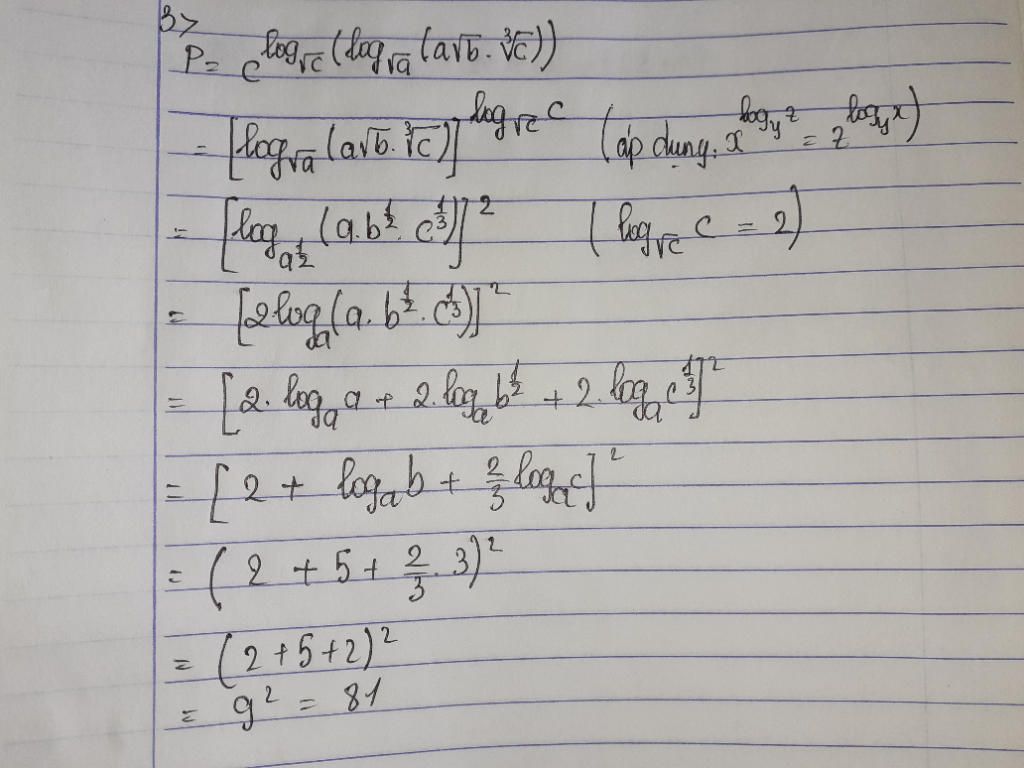 3>
P = c^{log_{√c}(log_{√a}(a√b.∛c))}
= [log_{√a}(a√b.∛c)]^{log_{√c}c} (áp dụng: x^{log_y z} = z^{log_y x})
= [log_{a^{1/2}}(a.b^{1/2}.c^{1/3})]^2 (log_{√c}c = 2)
= [2log_a(a.b^{1/2}.c^{1/3})]^2
= [2.log_a a + 2.log_a b^{1/2} + 2.log_a c^{1/3}]^2
= [2 + log_a b + 2/3 log_a c]^2
= (2 + 5 + 2/3.3)^2
= (2+5+2)^2
= 9^2 = 81